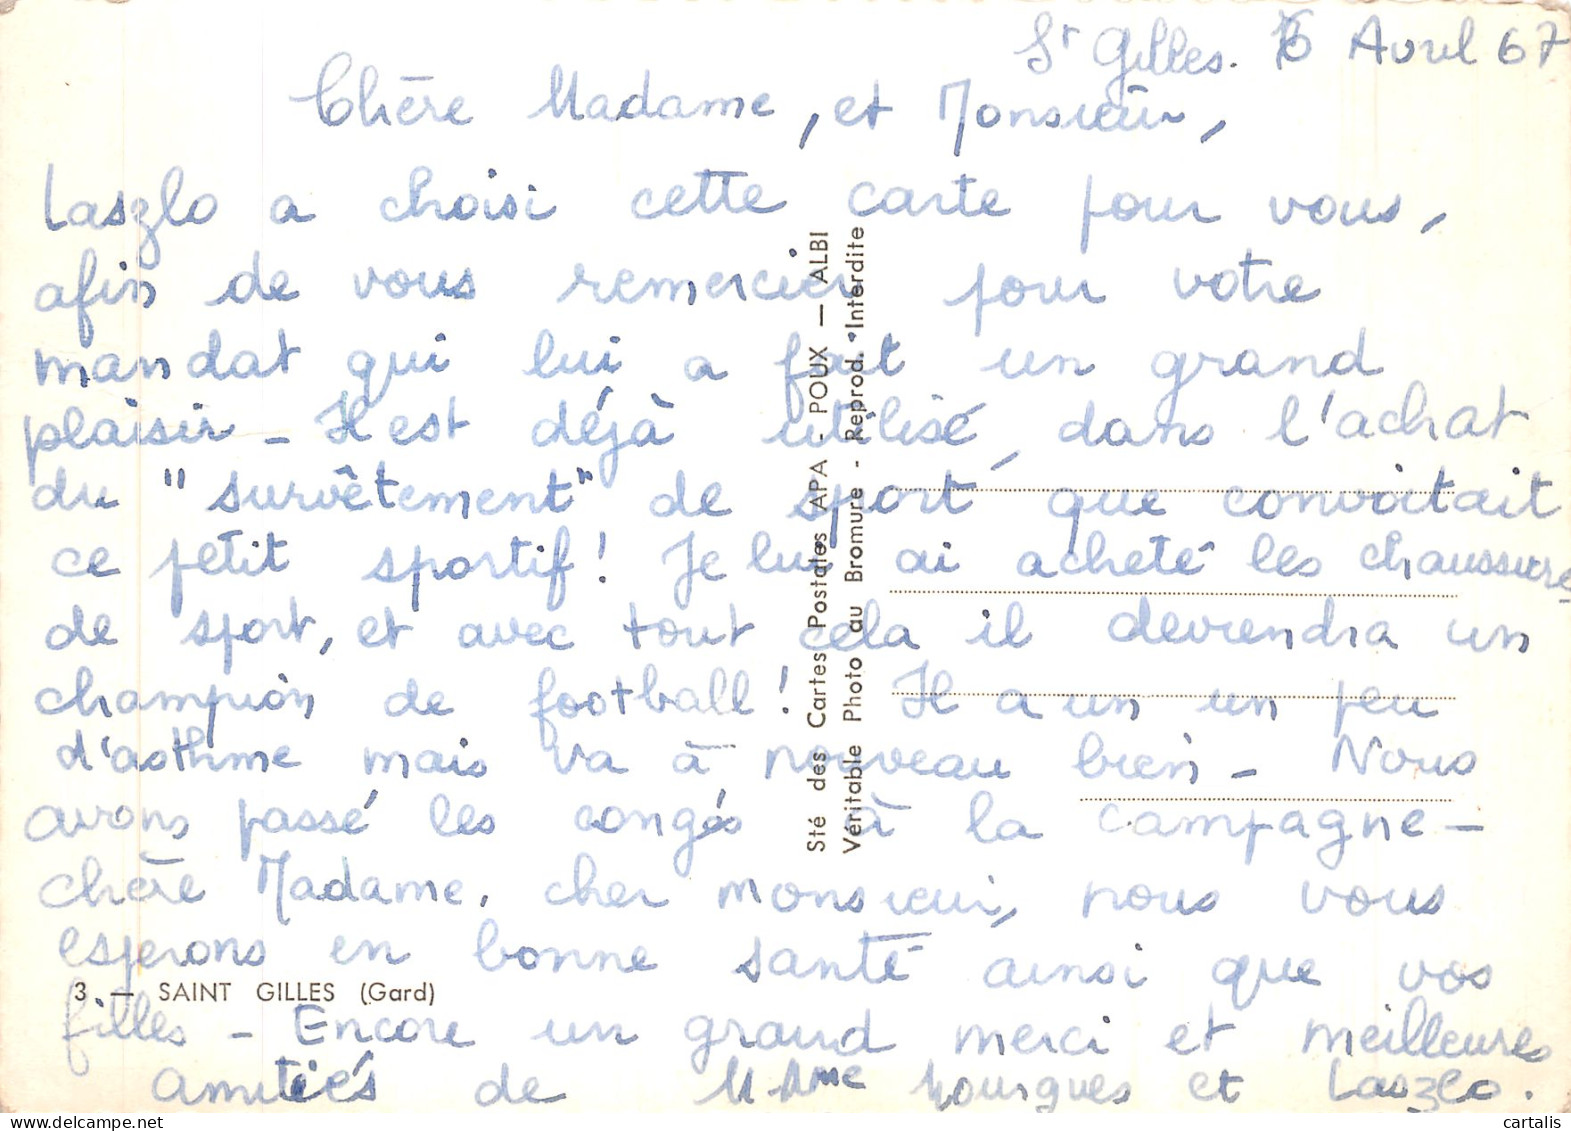 St Gilles. 16 Avril 67
Chère Madame, et Monsieur,
Laszlo a choisi cette carte pour vous,
afin de vous remercier pour votre
mandat qui lui a fait un grand
plaisir - Il est déjà utilisé, dans l'achat
du "survêtement" de sport que convoitait
ce petit sportif! Je lui ai acheté les chaussures
de sport, et avec tout cela il deviendra un
champion de football! Il a un un peu
d'asthme mais va à nouveau bien - Nous
avons passé les congés à la campagne -
chère Madame, cher monsieur, nous vous
esperons en bonne santé ainsi que vos
filles - Encore un grand merci et meilleures
amitiés de M Mme Mourgues et Laszlo.
3. — SAINT GILLES (Gard)
Sté des Cartes Postales APA - POUX — ALBI
Véritable Photo au Bromure - Reprod. Interdite
cartalis